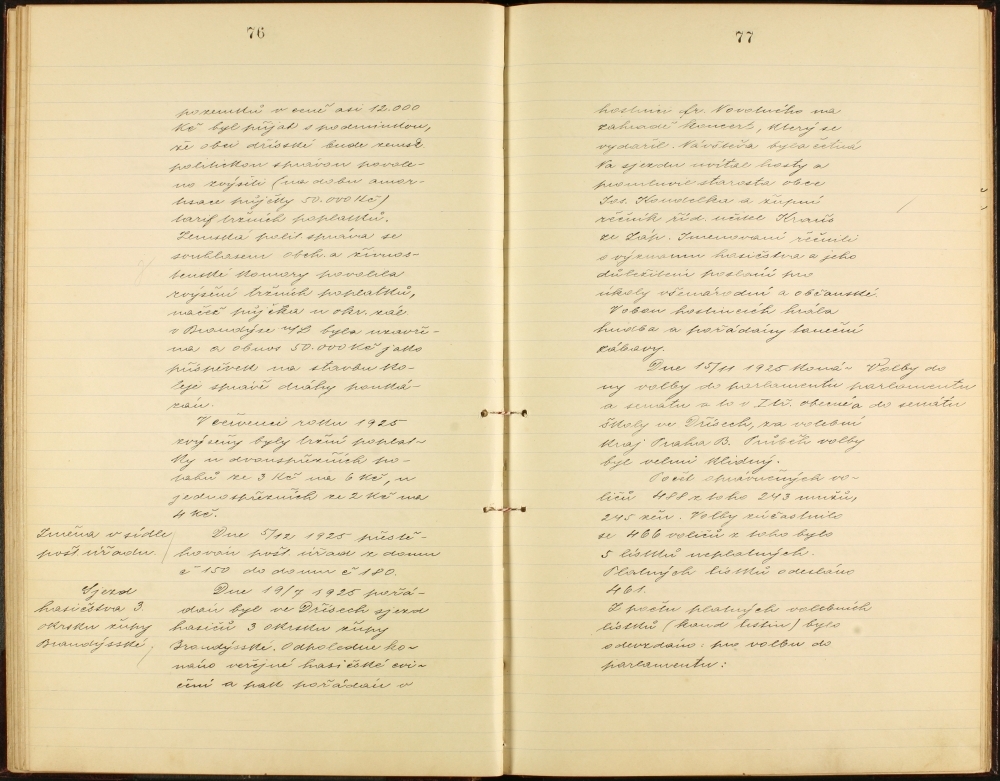 76
pozemků v ceně asi 12.000
Kč byl přijat s podmínkou,
že obci dřísské bude zemsk.
politickou správou povole-
no zvýšiti (na dobu amor-
tisace půjčky 50.000 Kč)
tarif tržních poplatků.
Zemská polit. správa se
souhlasem obch. a živnos-
tenské komory povolila
zvýšení tržních poplatků,
načež půjčka u okr. zál.
v Brandýse n/L byla uzavře-
na a obnos 50.000 Kč jako
příspěvek na stavbu ko-
leje správě dráhy pouká-
zán.
V červenci roku 1925
zvýšeny byly tržní poplat-
ky u dvouspřežních po-
tahů ze 3 Kč na 6 Kč, u
jednospřežních ze 2 Kč na
4 Kč.
Změna v sídle
pošt. úřadu.
Dne 5/12 1925 přestě-
hován pošt. úřad z domu
č 150 do domu č 180.
Sjezd
hasičstva 3.
okrsku župy
Brandýsské
Dne 19/7 1925 pořá-
dán byl ve Dřísech sjezd
hasičů 3 okrsku župy
Brandýsské. Odpoledne ko-
náno veřejné hasičské cvi-
čení a pak pořádán v
77
hostinci fr. Novotného na
zahradě koncert, který se
vydařil. Návštěva byla četná
Na sjezdu uvítal hosty a
promluvil starosta obce
Jos. Koudelka a župní
řečník říd. učitel Krauš
ze Záp. Jmenovaní řečnili
o významu hasičstva a jeho
důležitém poslání pro
úkoly všenárodní a občanské.
V obou hostincích hrála
hudba a pořádány taneční
zábavy.
Dne 15/11 1925 koná-
ny volby do parlamentu
a senátu a to v I tř. obecné
školy ve Dřísech, za volební
kraj Praha B. Průběh volby
byl velmi klidný.
Volby do
parlamentu
a do senátu
Počet oprávněných vo-
ličů 488 z toho 243 mužů,
245 žen. Volby zúčastnilo
se 466 voličů z toho bylo
5 lístků neplatných.
Platných lístků odesláno
461.
Z počtu platných volebních
lístků (kand. listin) bylo
odevzdáno: pro volbu do
parlamentu: